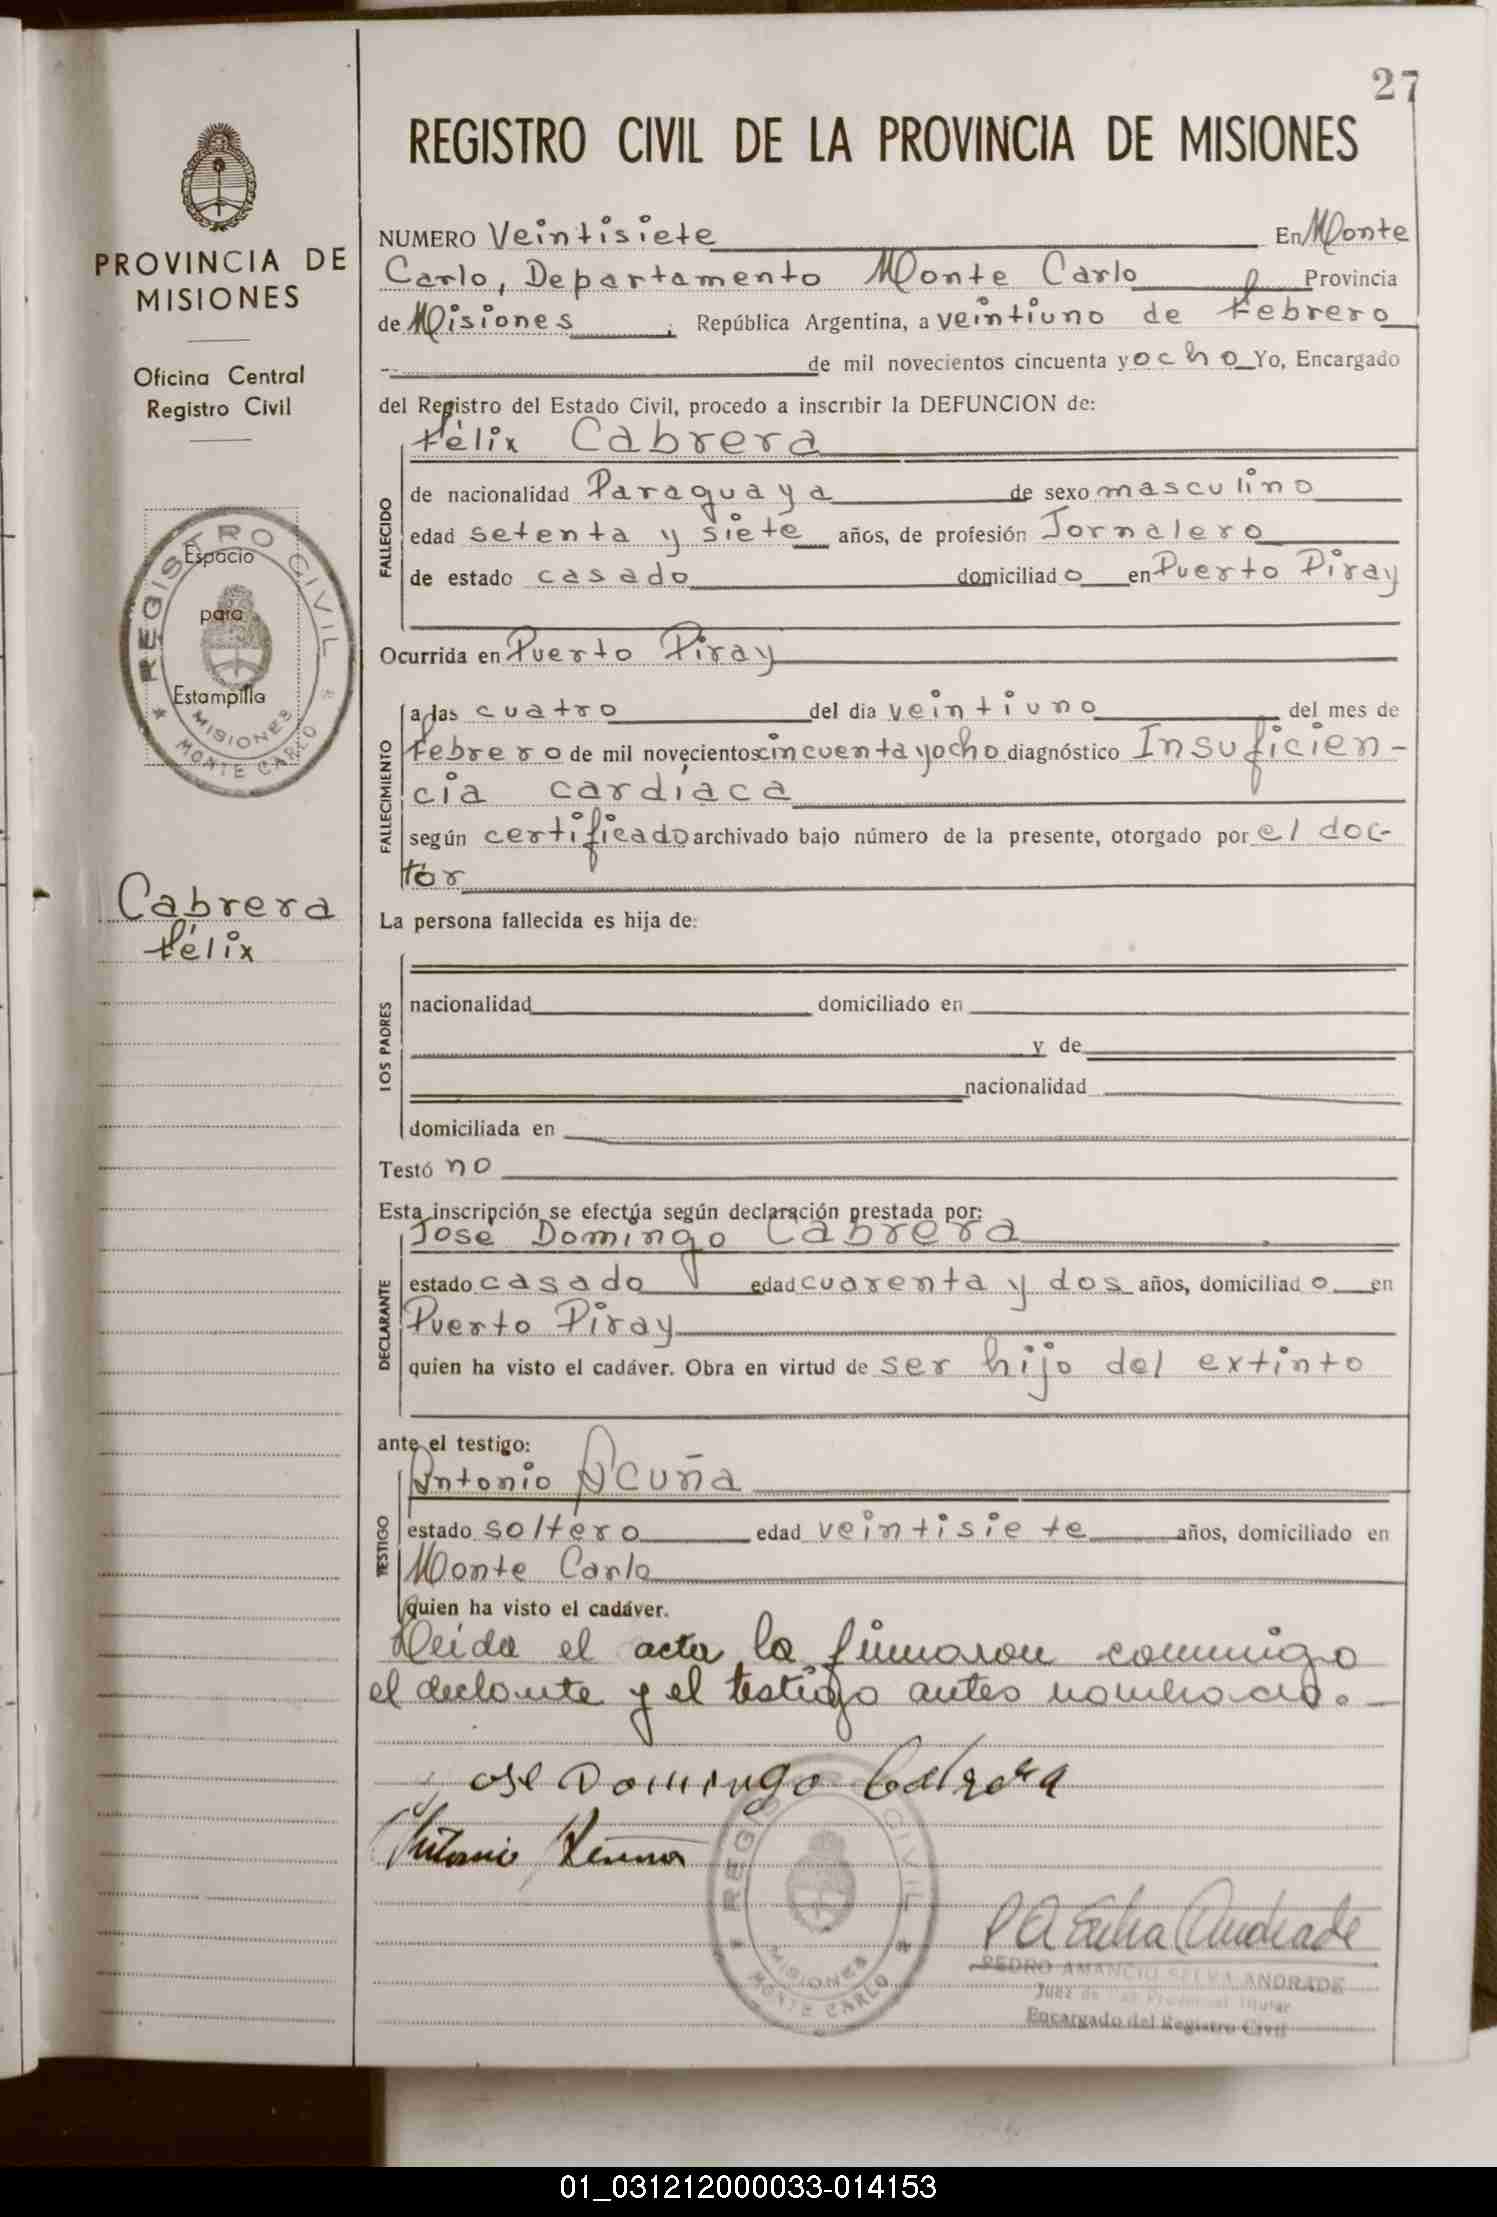 27
REGISTRO CIVIL DE LA PROVINCIA DE MISIONES
PROVINCIA DE
MISIONES
Oficina Central
Registro Civil
REGISTRO CIVIL
Espacio
para
Estampilla
MISIONES
MONTE CARLO
Cabrera
Félix
NUMERO Veintisiete En Monte
Carlo, Departamento Monte Carlo Provincia
de Misiones, República Argentina, a veintiuno de Febrero
de mil novecientos cincuenta y ocho Yo, Encargado
del Registro del Estado Civil, procedo a inscribir la DEFUNCION de:
FALLECIDO
Félix Cabrera
de nacionalidad Paraguaya de sexo masculino
edad setenta y siete años, de profesión Jornalero
de estado casado domiciliado en Puerto Piray
Ocurrida en Puerto Piray
FALLECIMIENTO
a las cuatro del dia veintiuno del mes de
Febrero de mil novecientos cincuenta y ocho diagnóstico Insuficien-
cia cardíaca
según certificado archivado bajo número de la presente, otorgado por el doc-
tor
La persona fallecida es hija de:
LOS PADRES
nacionalidad domiciliado en
y de
nacionalidad
domiciliada en
Testó no
Esta inscripción se efectúa según declaración prestada por:
DECLARANTE
José Domingo Cabrera
estado casado edad cuarenta y dos años, domiciliado en
Puerto Piray
quien ha visto el cadáver. Obra en virtud de ser hijo del extinto
ante el testigo:
TESTIGO
Antonio Acuña
estado soltero edad veintisiete años, domiciliado en
Monte Carlo
quien ha visto el cadáver.
Leída el acta, la firmaron conmigo
el declarante y el testigo antes nombrado.
Jose Domingo Cabrera
Antonio Acuña
REGISTRO CIVIL
MISIONES
MONTE CARLO
PEDRO AMANCIO SELVA ANDRADE
Juez de Paz Provincial Titular
Encargado del Registro Civil
01_031212000033-014153